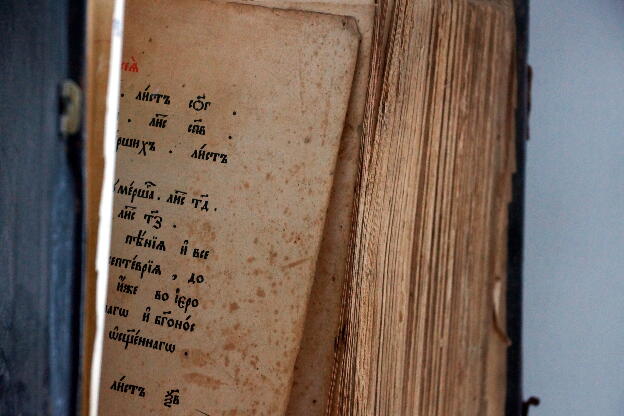 . ли́стъ со҃г .
. ли̑с сп҃в .
ршихъ . ли́стъ
уме́рша . ли̑с тд҃ .
ли̑с тз҃ .
пѣ́нїѧ и҆ все
септе́врїѧ , до
и҆́же во і҆єро
нагѡ и҆ бг҃оно́с
ѡ҆сщ҃е́ннагѡ .
ли́стъ